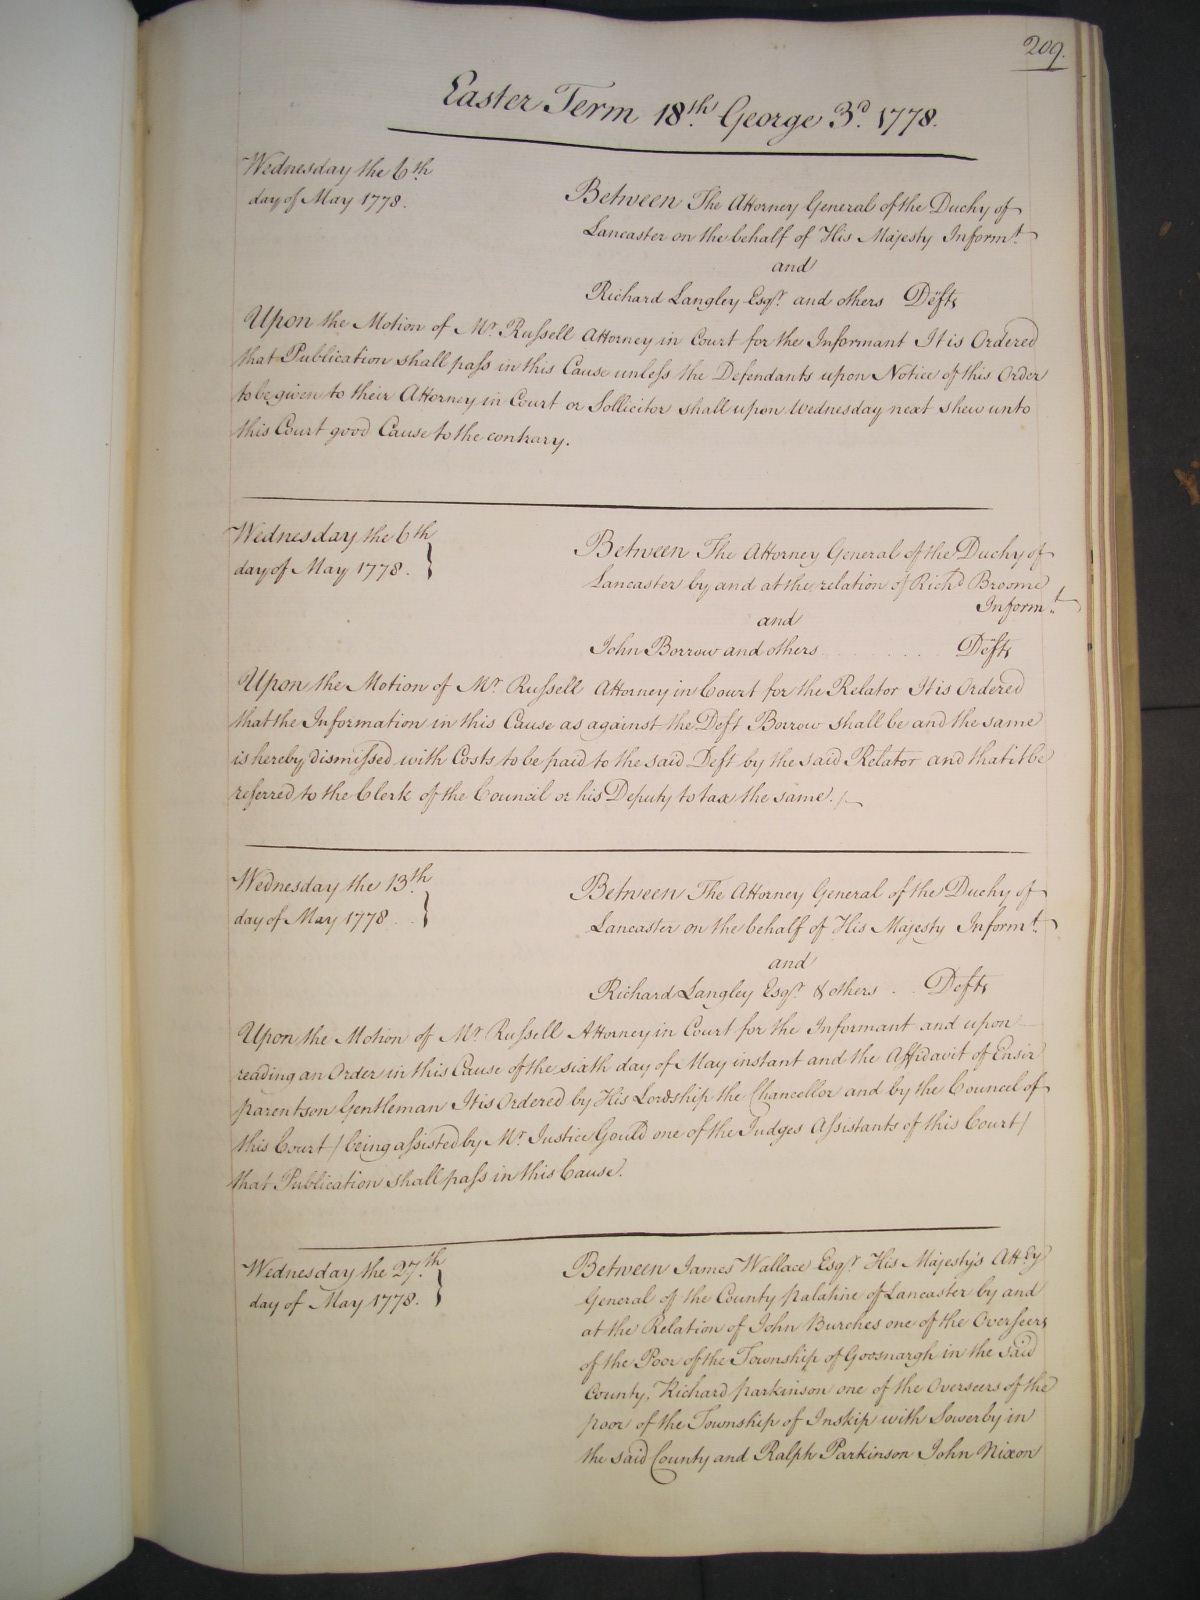 209.
Easter Term 18th. George 3d. 1778.
Wednesday the 6th
day of May 1778.
Between The Attorney General of the Duchy of
Lancaster on the behalf of His Majesty Informt.
and
Richard Langley Esqr. and others Defts
Upon the Motion of Mr. Russell Attorney in Court for the Informant It is Ordered
that Publication shall pass in this Cause unless the Defendants upon Notice of this Order
to be given to their Attorney in Court or Sollicitor shall upon Wednesday next shew unto
this Court good Cause to the contrary.
Wednesday the 6th
day of May 1778.
Between The Attorney General of the Duchy of
Lancaster by and at the relation of Richd Broome
Informt.
and
John Borrow and others . . . . . . Defts
Upon the Motion of Mr. Russell Attorney in Court for the Relator It is Ordered
that the Information in this Cause as against the Deft Borrow shall be and the same
is hereby dismissed with Costs to be paid to the said Deft by the said Relator and that it be
referred to the Clerk of the Council or his Deputy to tax the same.
Wednesday the 13th.
day of May 1778
Between The Attorney General of the Duchy of
Lancaster on the behalf of His Majesty Informt.
and
Richard Langley Esqr. & others . . Defts
Upon the Motion of Mr. Russell Attorney in Court for the Informant and upon
reading an Order in this Cause of the sixth day of May instant and the Affidavit of
parentson Gentleman It is Ordered by His Lordship the Chancellor and by the Councel of
this Court / being assisted by Mr. Justice Gould one of the Judges Assistants of this Court /
that Publication shall pass in this Cause.
Wednesday the 27.th
day of May 1778.
Between James Wallace Esqr. His Majesty's Attey
General of the County palatine of Lancaster by and
at the Relation of John Burches one of the Overseers
of the Poor of the Township of Goosnargh in the said
County, Richard parkinson one of the Overseers of the
poor of the Township of Inskip with Sowerby in
the said County and Ralph Parkinson John Nixon